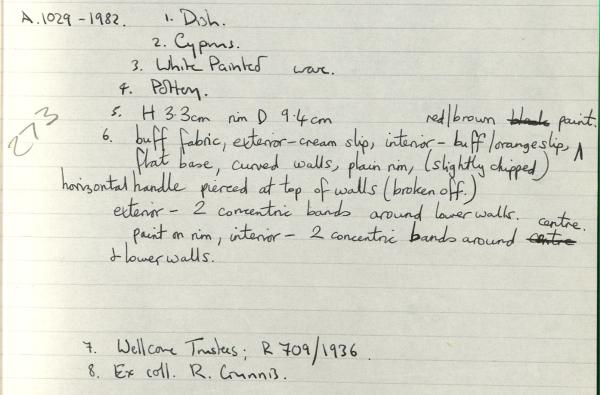 A.1029-1982. 1. Dish.
2. Cyprus.
3. White Painted ware.
4. Pottery.
5. H 3.3cm rim D 9.4cm red/brown black paint.
273
6. buff fabric, exterior-cream slip, interior-buff/orange slip, ∧
flat base, curved walls, plain rim, (slightly chipped)
horizontal handle pierced at top of walls (broken off.)
exterior - 2 concentric bands around lower walls. centre.
paint on rim, interior - 2 concentric bands around centre
& lower walls.
7. Wellcome Trustees; R 709/1936.
8. Ex coll. R. Gunnis.